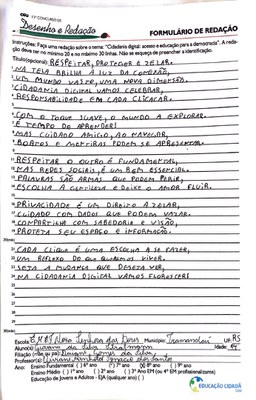 CGU 17º CONCURSO DE
Desenho e Redação
FORMULÁRIO DE REDAÇÃO
Instruções: Faça uma redação sobre o tema: "Cidadania digital: acesso e educação para a democracia". A redação deve ter no mínimo 20 e no máximo 30 linhas. Não se esqueça de preencher a identificação.
Título(opcional): RESPEITAR, PROTEGER E ZELAR.
NA TELA BRILHA A LUZ DA CONEXÃO,
UM MUNDO VASTE, UMA NOVA DIMENSÃO.
CIDADANIA DIGITAL VAMOS CELEBRAR,
RESPONSABILIDADE EM CADA CLICAR.
COM O TOQUE SUAVE, O MUNDO A EXPLORAR.
É TEMPO DE APRENDER!
MAS CUIDADO AMIGO, AO NAVEGAR,
BOATOS E MENTIRAS PODEM SE APRESENTAR.
RESPEITAR O OUTRO É FUNDAMENTAL,
NAS REDES SOCIAIS, É UM BEM ESSENCIAL.
PALAVRAS SÃO ARMAS QUE PODEM FERIR,
ESCOLHA A GENTILEZA E DEIXE O AMOR FLUIR.
PRIVACIDADE É UM DIREITO A ZELAR,
CUIDADO COM DADOS QUE PODEM VAZAR.
COMPARTILHA COM SABEDORIA E VISÃO,
PROTEJA SEU ESPAÇO E INFORMAÇÃO.
20(min)
CADA CLIQUE É UMA ESCOLHA A SE FAZER,
UM REFLEXO DO QUE QUEREMOS VIVER.
SEJA A MUDANÇA QUE DESEJA VER,
NA CIDADANIA DIGITAL VAMOS FLORESCER!
30(max)
Escola: EMEF Nossa Senhora das Dores Município: Tramandaí UF: RS
Aluno(a): da Silva Idade: 14
Filiação (mãe ou pai): Gomes da Silva
Professor(a): Ignacio dos Santos
Ano: Ensino Fundamental ( ) 6º ano ( ) 7º ano (X) 8º ano ( ) 9º ano
Ensino Médio ( ) 1º ano ( ) 2º ano ( ) 3º Ano EM (ou 4º EM profissionalizante)
Educação de Jovens e Adultos - EJA (qualquer ano) ( )
EDUCAÇÃO CIDADÃ